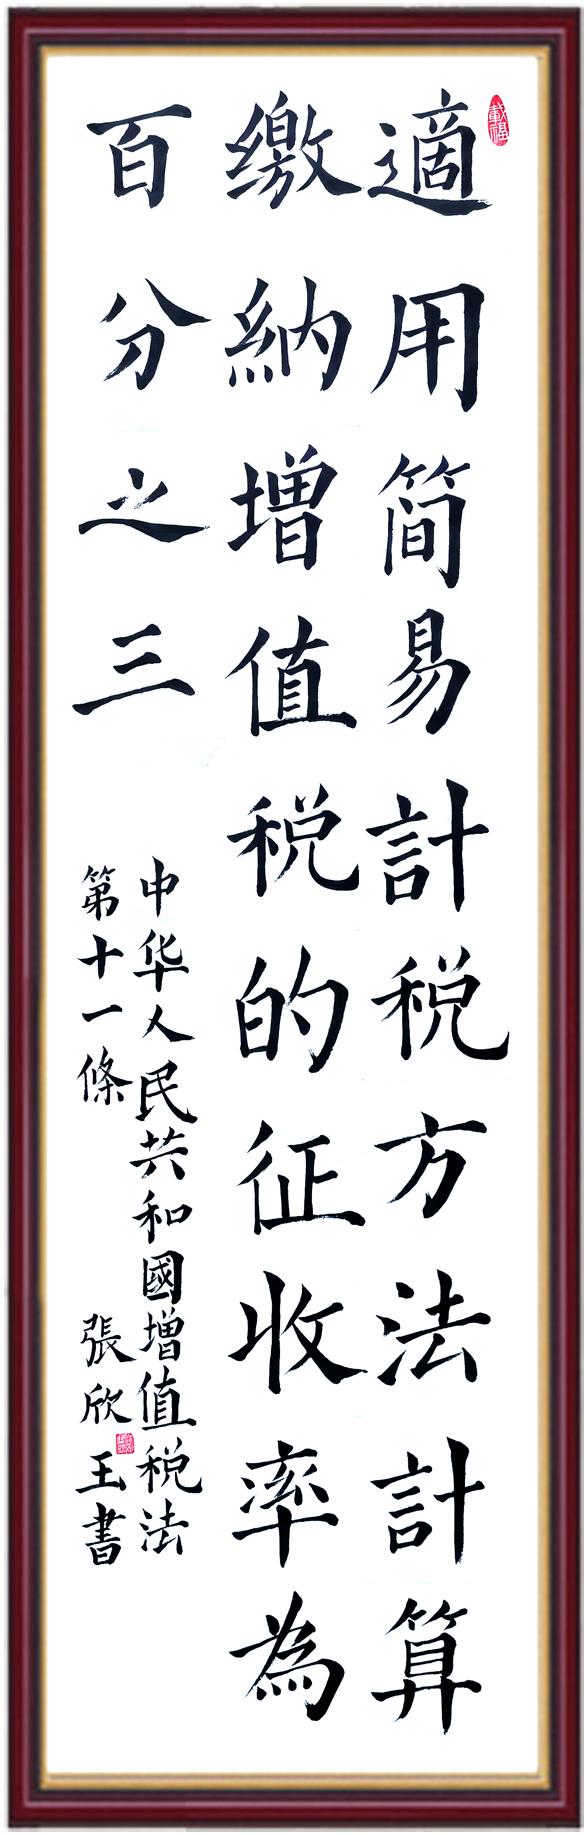 載福
適用简易計税方法計算
缴納增值税的征收率為
百分之三
中华人民共和國增值税法
第十一條
張欣王書